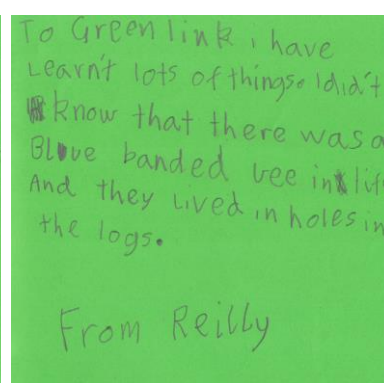 To Green link i have
Learn't lots of things. I did't
know that there was a
Blue banded bee in life
And they lived in holes in
the logs.
From Reilly